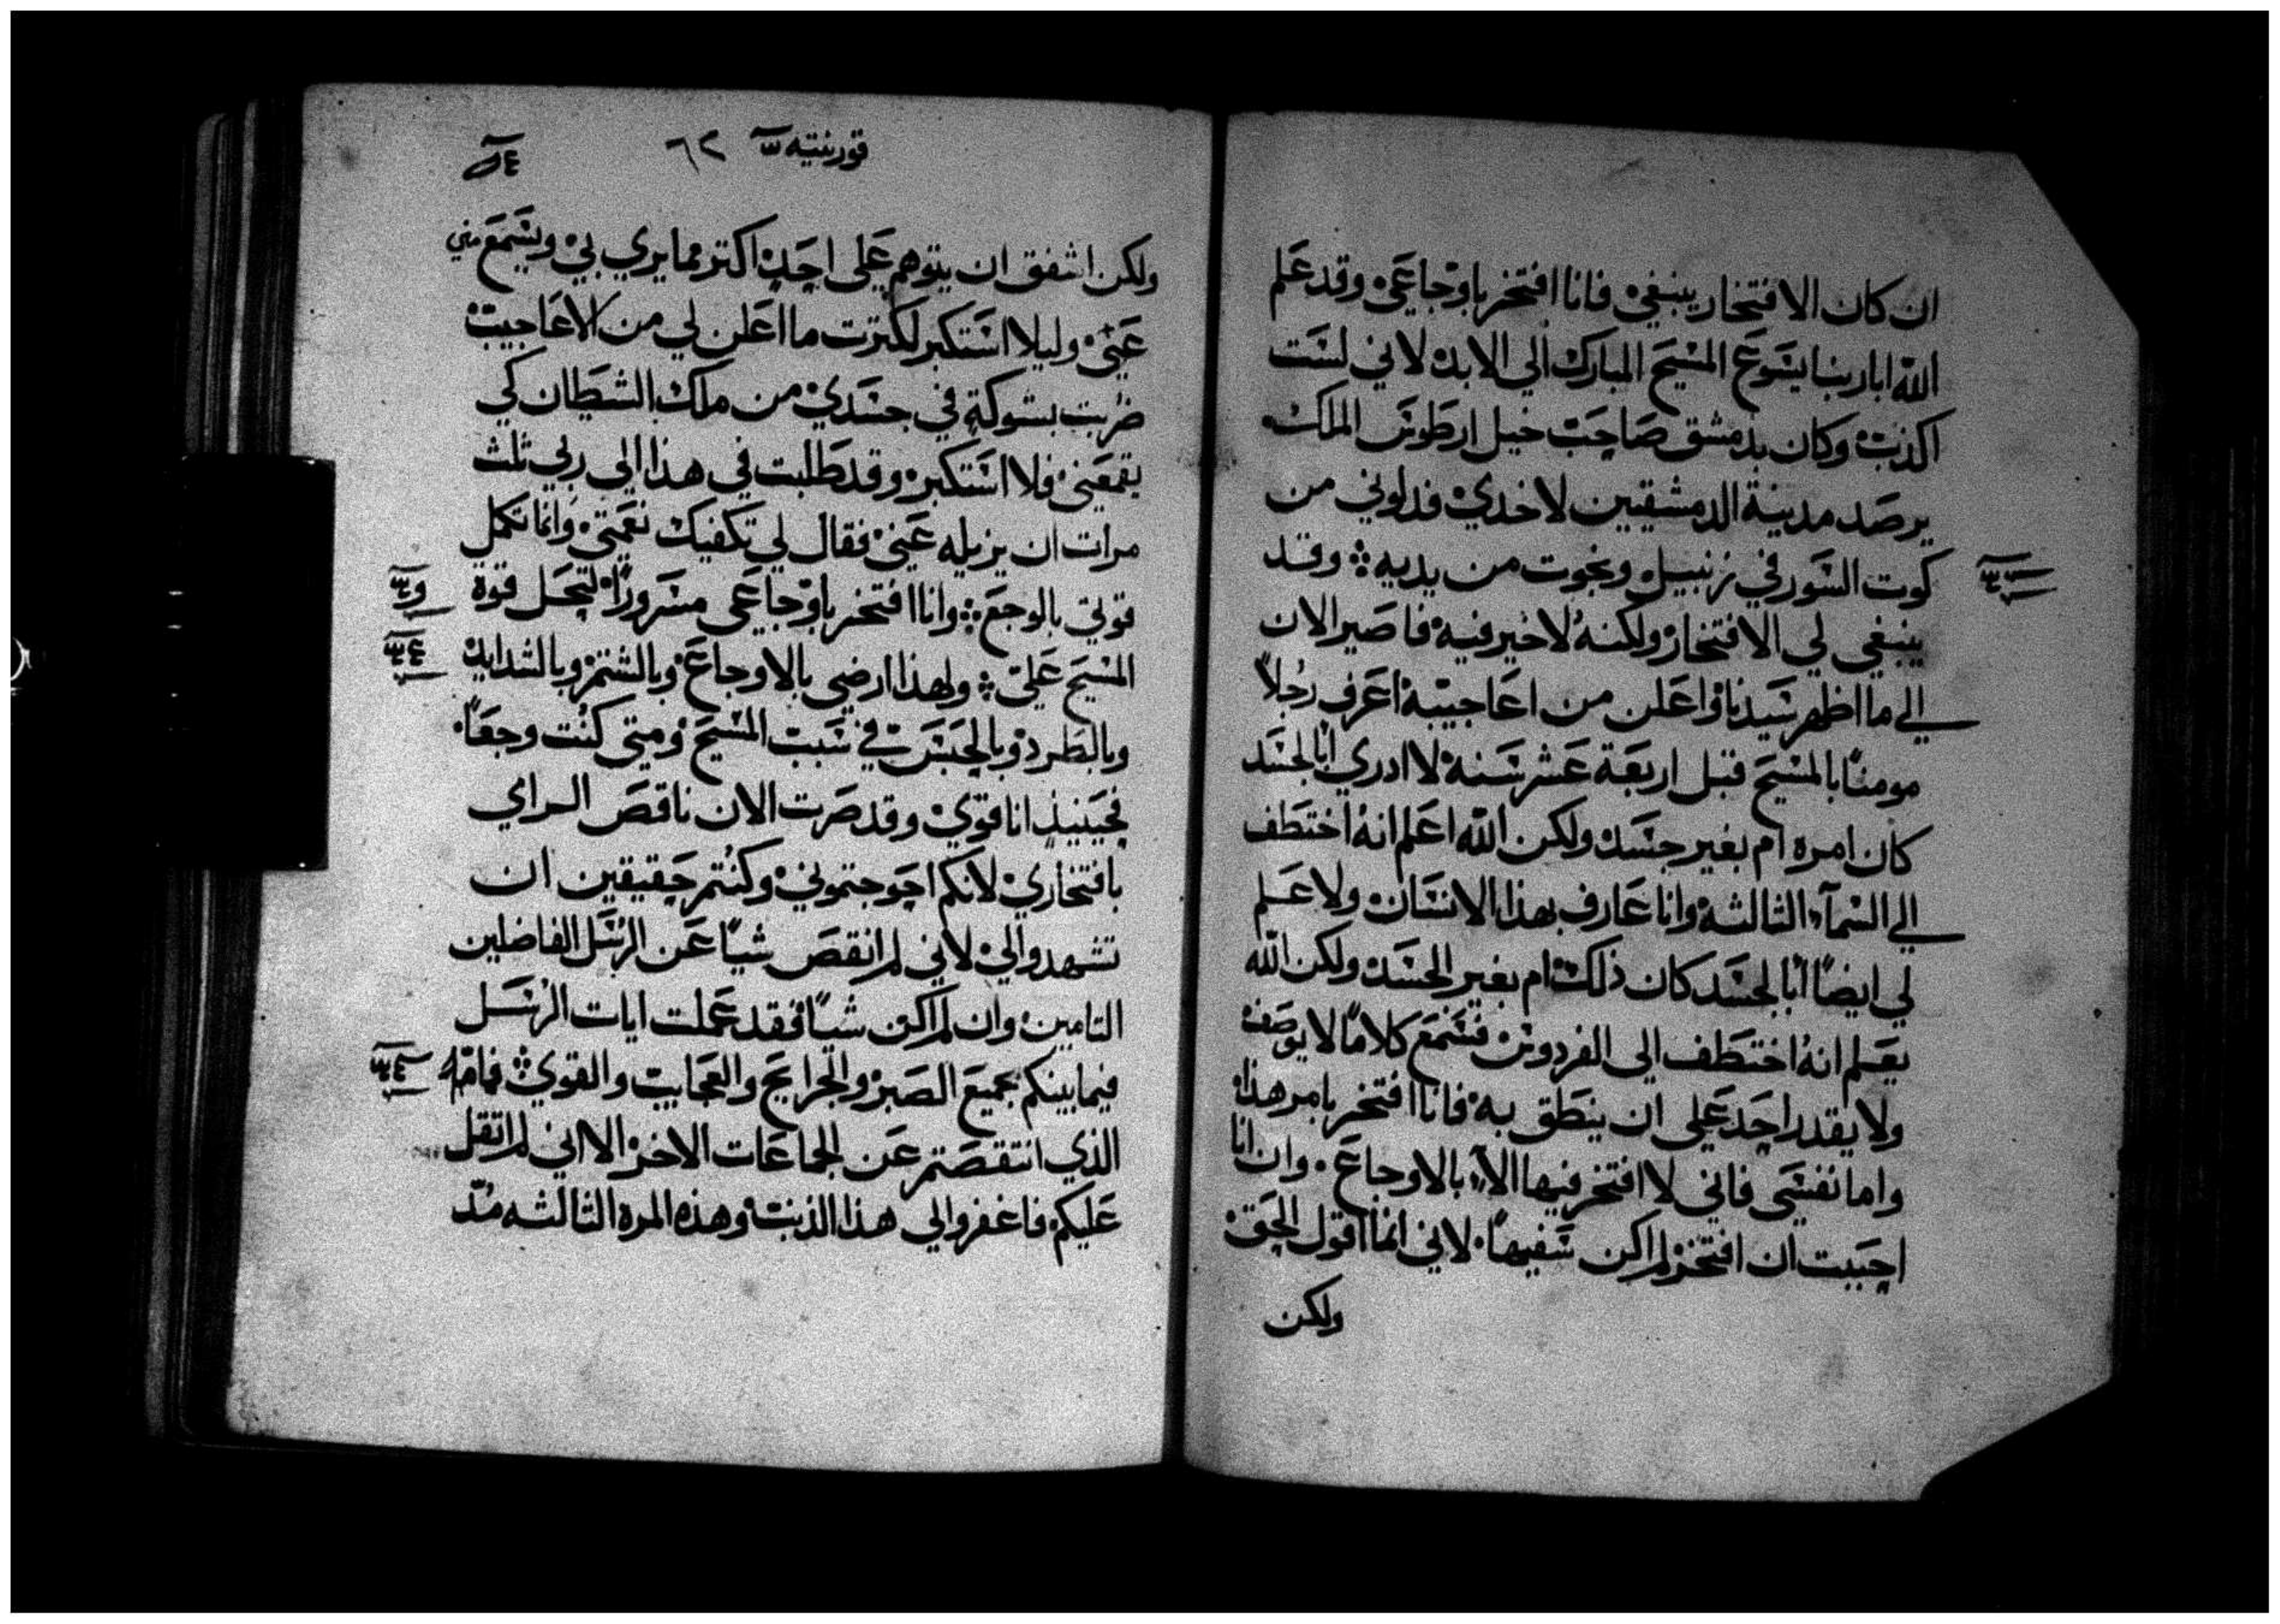 ان كان الافتخار ينبغي فانا افتخر باوجاعي وقد علم
الله ابا ربنا يسوع المسيح المبارك الي الابد لاني لست
اكذب وكان بدمشق صاحب خيل ارطوس الملك
يرصد مدينة الدمشقيين لاخدي فدلوني من
كوت السور في زنبيل ونجوت من يديه ؞ وقد
ينبغي لي الافتخار ولكنه لا خير فيه فاصير الان
الي ما اظهر سيدنا واعلن من اعاجيبه اعرف رجلاً
مومنًا بالمسيح قبل اربعة عشر سنة لا ادري أبالجسد
كان امره ام بغير جسد ولكن الله اعلم انهُ اختطف
الي السمآء الثالثه وانا عارف بهذا الانسان ولا علم
لي ايضًا أبالجسد كان ذلك ام بغير الجسد ولكن الله
يعلم انهُ اختطف الى الفردوس فسمع كلامًا لا يوصف
ولا يقدر احد علي ان ينطق به فانا افتخر بامر هذا
واما نفسي فاني لا افتخر فيها الآ بالاوجاع وان انا
احببت ان افتخر لم اكن سفيهًا لاني انما اقول الحق
ولكن
قورنتيه ٦٢
ولكن اشفق ان يتوهم علي احد اكتر مما يري بي ويسمع مني
عني وليلا استكبر لكترت ما اعلن لي من الاعاجيب
ضربت بشوكة في جسدي من ملاك الشيطان كي
يقمعني فلا استكبر وقد طلبت في هذا الي ربي ثلث
مرات ان يزيله عني فقال لي تكفيك نعمتي وانما تكمل
قوتي بالوجع ؞ وانا افتخر باوجاعي مسرورًا لتحل قوة
المسيح علي ؞ ولهذا ارضي بالاوجاع وبالشتم وبالشدايد
وبالطرد وبالحبس في سبب المسيح ومتي كنت وجعًا
فحينيذ انا قوي وقد صرت الان ناقص الراي
بافتخاري لانكم احوجتموني وكنتم حقيقين ان
تشهدوا لي لاني لم انقص شيًا عن الرسل الفاضلين
التامين وان لم اكن شيًا فقد عملت ايات الرسل
فيما بينكم بجميع الصبر والجرايح والعجايب والقوي ؞ فما
الذي انتقصتم عن الجماعات الاخر الا اني لم اتقل
عليكم فاغفروا لي هذا الذنب وهذه المره الثالثه مذ